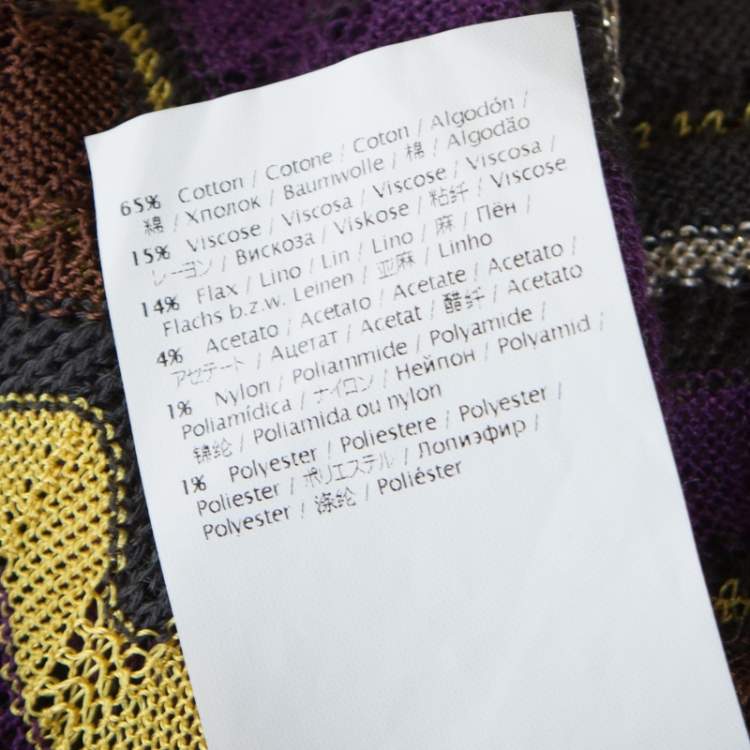 65% Cotton / Cotone / Coton / Algodón /
綿 / Хлопок / Baumwolle / 棉 / Algodão
15% Viscose / Viscosa / Viscose / Viscosa /
レーヨン / Вискоза / Viskose / 粘纤 / Viscose
14% Flax / Lino / Lin / Lino / 麻 / Лён /
Flachs b.z.w. Leinen / 亚麻 / Linho
4% Acetato / Acetato / Acetate / Acetato /
アセテート / Ацетат / Acetat / 醋纤 / Acetato
1% Nylon / Poliammide / Polyamide /
Poliamídica / ナイロン / Нейлон / Polyamid /
锦纶 / Poliamida ou nylon
1% Polyester / Poliestere / Polyester /
Poliester / ポリエステル / Полиэфир /
Polyester / 涤纶 / Poliéster